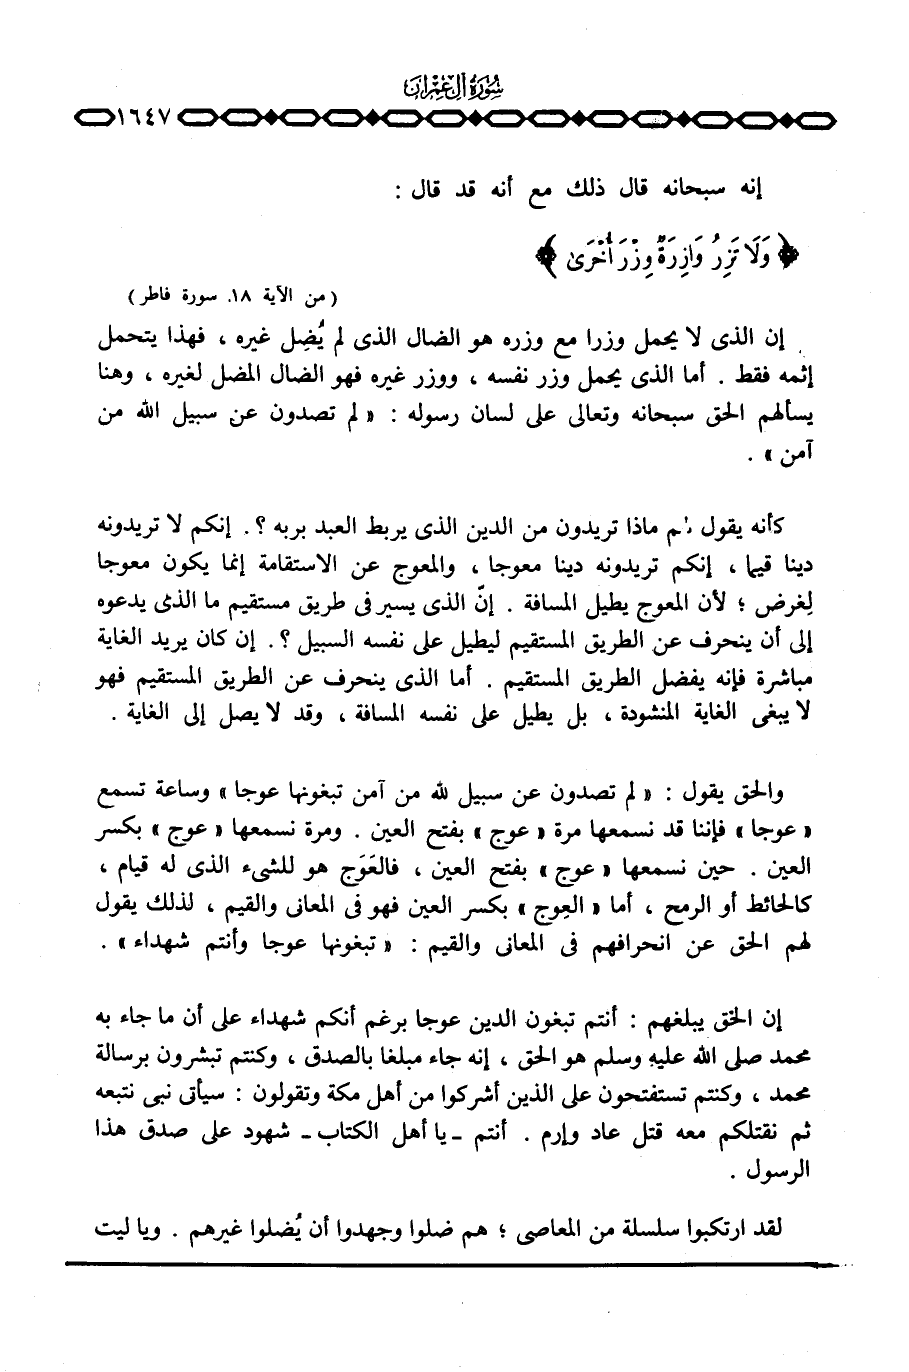 سُورَةُ آلِ عِمْرَانَ
١٦٤٧
إنه سبحانه قال ذلك مع أنه قد قال :
﴿ وَلَا تَزِرُ وَازِرَةٌ وِزْرَ أُخْرَىٰ ﴾
( من الآية ١٨. سورة فاطر )
إن الذى لا يحمل وزرا مع وزره هو الضال الذى لم يُضِل غيره ، فهذا يتحمل
إثمه فقط . أما الذى يحمل وزر نفسه ، ووزر غيره فهو الضال المضل لغيره ، وهنا
يسألهم الحق سبحانه وتعالى على لسان رسوله : « لم تصدون عن سبيل الله من
آمن » .
كأنه يقول لهم ماذا تريدون من الدين الذى يربط العبد بربه ؟. إنكم لا تريدونه
دينا قيما ، إنكم تريدونه دينا معوجا ، والمعوج عن الاستقامة إنما يكون معوجا
لِغرض ؛ لأن المعوج يطيل المسافة . إنّ الذى يسير فى طريق مستقيم ما الذى يدعوه
إلى أن ينحرف عن الطريق المستقيم ليطيل على نفسه السبيل ؟. إن كان يريد الغاية
مباشرة فإنه يفضل الطريق المستقيم . أما الذى ينحرف عن الطريق المستقيم فهو
لا يبغى الغاية المنشودة ، بل يطيل على نفسه المسافة ، وقد لا يصل إلى الغاية .
والحق يقول : « لم تصدون عن سبيل لله من آمن تبغونها عوجا » وساعة تسمع
« عوجا » فإننا قد نسمعها مرة « عوج » بفتح العين . ومرة نسمعها « عوج » بكسر
العين . حين نسمعها « عوج » بفتح العين ، فالعَوَج هو للشىء الذى له قيام ،
كالحائط أو الرمح ، أما « العِوج » بكسر العين فهو فى المعانى والقيم ، لذلك يقول
لهم الحق عن انحرافهم فى المعانى والقيم : « تبغونها عوجا وأنتم شهداء » .
إن الحق يبلغهم : أنتم تبغون الدين عوجا برغم أنكم شهداء على أن ما جاء به
محمد صلى الله عليه وسلم هو الحق ، إنه جاء مبلغا بالصدق ، وكنتم تبشرون برسالة
محمد ، وكنتم تستفتحون على الذين أشركوا من أهل مكة وتقولون : سيأتى نبى نتبعه
ثم نقتلكم معه قتل عاد وإرم . أنتم ـ يا أهل الكتاب ـ شهود على صدق هذا
الرسول .
لقد ارتكبوا سلسلة من المعاصى ؛ هم ضلوا وجهدوا أن يُضلوا غيرهم . ويا ليت